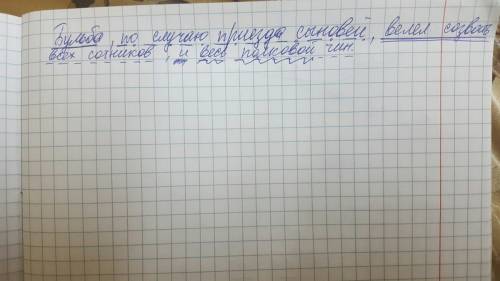 Бульба, по случаю приезда сыновей, велел созвать
всех сотников, и весь полковой чин.